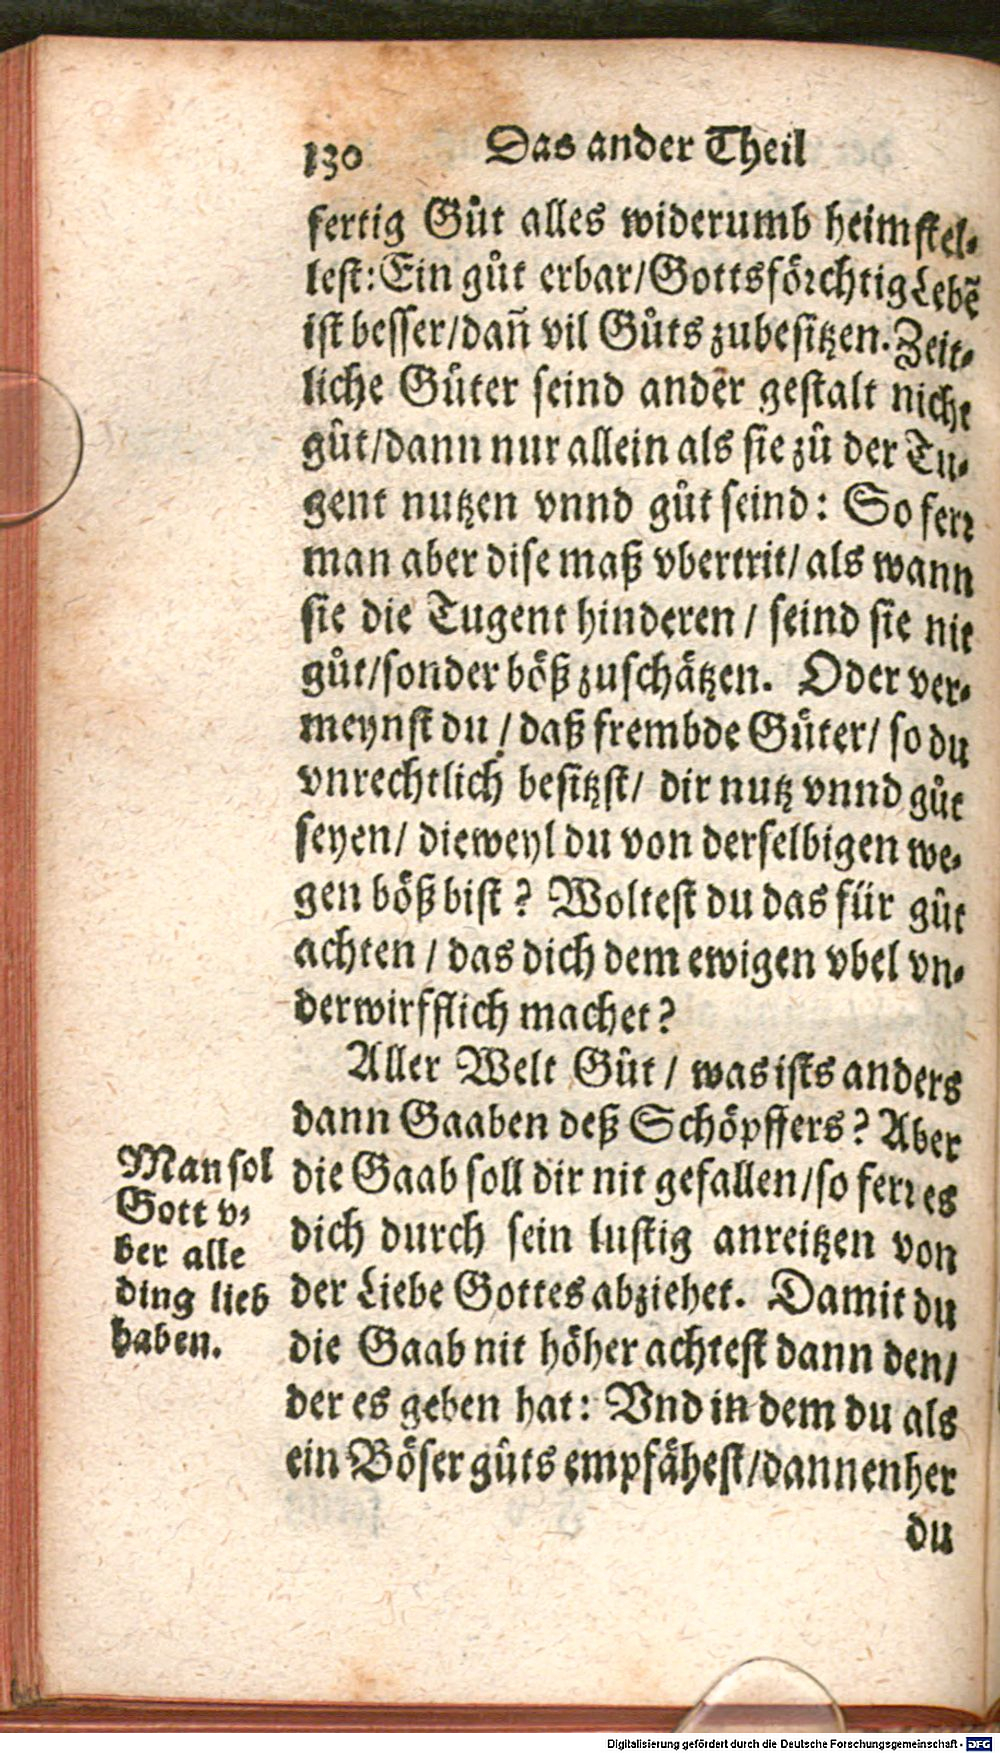 130 Das ander Theil
fertig Gůt alles widerumb heimstel-
lest: Ein gůt erbar/ Gottsförchtig Lebē
ist besser/ dañ vil Gůts zubesitzen. Zeit-
liche Güter seind ander gestalt nicht
gůt/ dann nur allein als sie zů der Tu-
gent nutzen vnnd gůt seind: So ferr
man aber dise maß vbertrit/ als wann
sie die Tugent hinderen / seind sie nit
gůt/ sonder böß zuschätzen. Oder ver-
meynst du / daß frembde Güter/ so du
vnrechtlich besitzst/ dir nutz vnnd gůt
seyen/ dieweyl du von derselbigen we-
gen böß bist? Woltest du das für gůt
achten / das dich dem ewigen vbel vn-
derwirfflich machet?
Aller Welt Gůt / was ists anders
dann Gaaben deß Schöpffers? Aber
die Gaab soll dir nit gefallen/ so ferr es
dich durch sein lustig anreitzen von
der Liebe Gottes abziehet. Damit du
die Gaab nit höher achtest dann den/
der es geben hat: Vnd in dem du als
ein Böser gůts empfähest/ dannenher
du
Man sol
Gott v-
ber alle
ding lieb
haben.
Digitalisierung gefördert durch die Deutsche Forschungsgemeinschaft - DFG